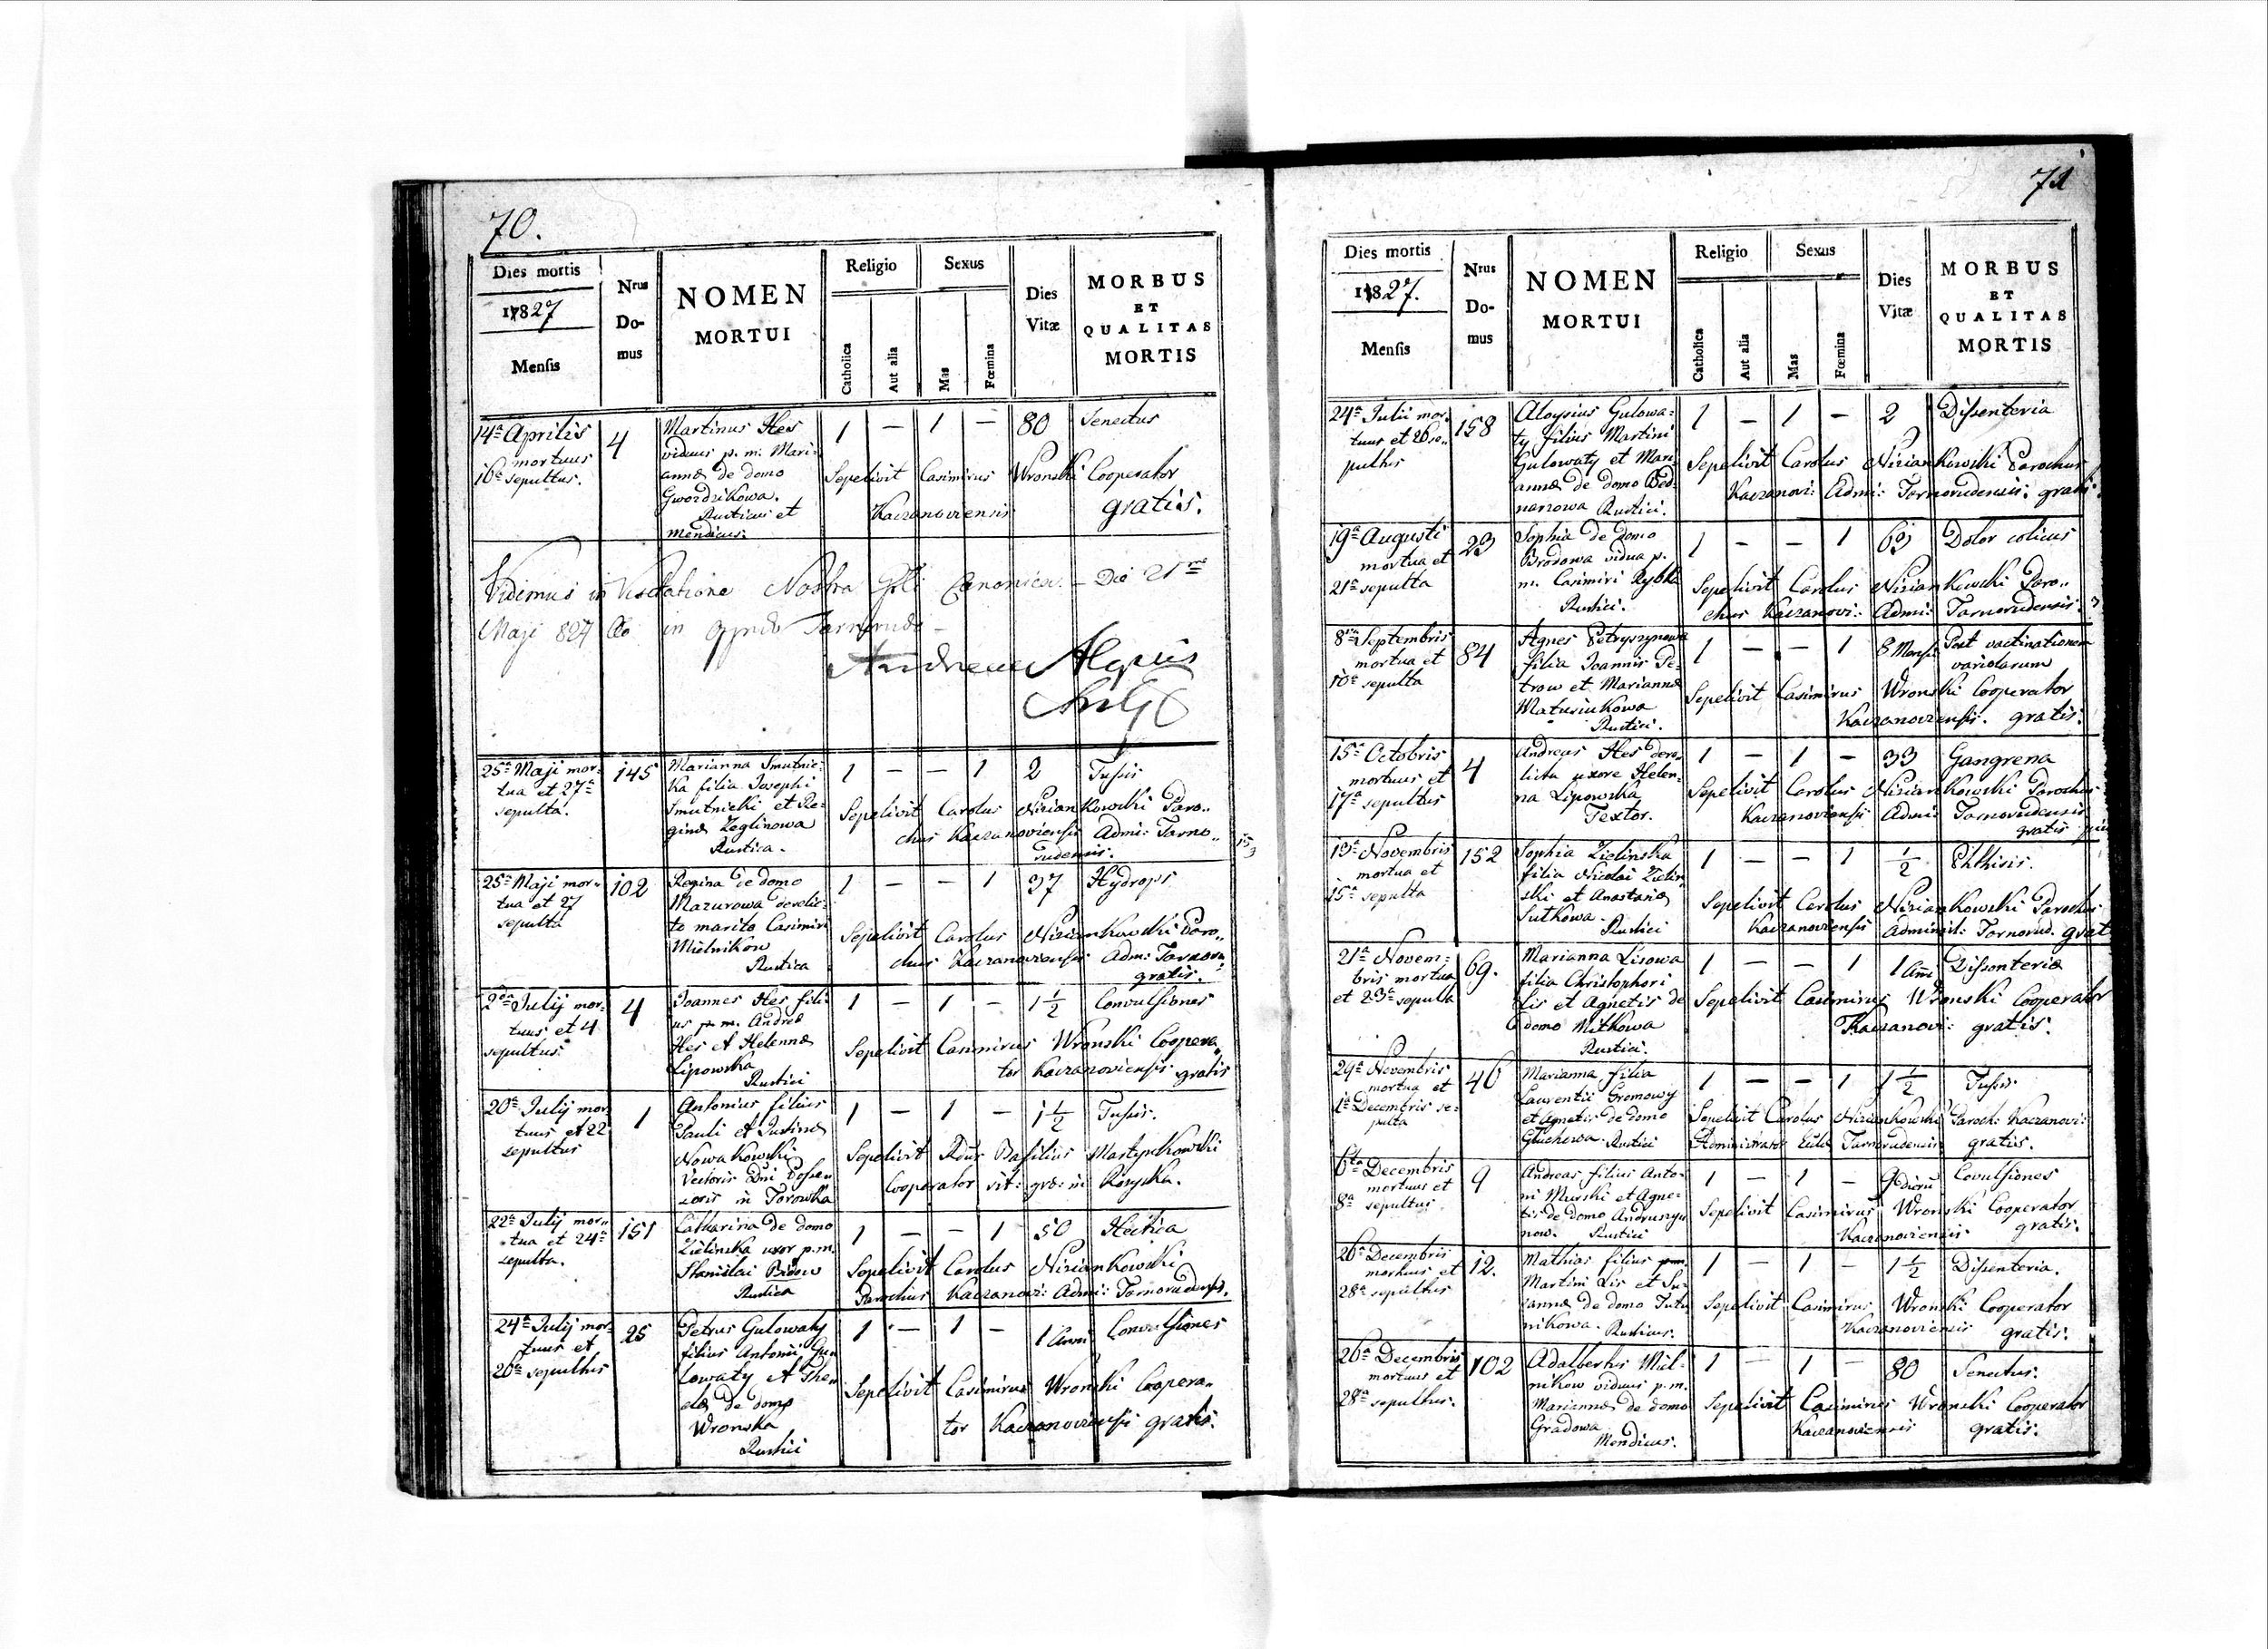 70.
Dies mortis
1827
Mensis
Nrus Do-mus
NOMEN MORTUI
Religio
Catholica
Aut alia
Sexus
Mas
Fœmina
Dies Vitæ
MORBUS
ET
QUALITAS
MORTIS
14a Aprilis
mortuus
16a sepultus.
4
Martinus Hes
viduus p. m. Mari-
annæ de domo
Gwozdzikowa.
Rusticus et
Mendicus.
1 — 1 — 80 Senectus
Sepelivit Casimirus Wronski Cooperator
Kaczanoviensis gratis.
Vidimus in Visitatione Nostra Gnli Canonica — Die 21ma
Maji 827 in Tarnoruda —
Andreas Aloysius
25a Maji mor-
tua et 27a
sepulta.
145
Marianna Smutnic-
ka filia Josephi
Smutnicki et Re-
ginæ Zeglinowa
Rustica.
1 — — 1 2 Tussis
Sepelivit Carolus Niziankowski Paro..
chus Kaczanoviensis Admi: Tarno..
rudensis.
25a Maji mor..
tua et 27
sepulta
102
Regina de domo
Mazurowa derelic-
to marito Casimiri
Mielnikow
Rustica
1 — — 1 37 Hydrops
Sepelivit Carolus Niziankowski Paro..
chus Kaczanoviensis Adm: Tarnoru
gratis.
2da Julij mor-
tuus et 4
sepultus.
4
Joannes Hes fili-
us p. m. Andreæ
Hes et Helennæ
Lipowska
Rustici
1 — 1 — 1 1/2 Convulsiones
Sepelivit Casimirus Wronski Coopera..
tor Kaczanoviensis gratis
20a Julij mor-
tuus et 22
sepultus
1
Antonius filius
Pauli et Justinæ
Nowakowski
Vectoris Dni Posses-
soris in Torowka
1 — 1 — 1 1/2 Tussis.
Sepelivit Rdus Basilius Martynkowski
Cooperator rit: græ: in
22a Julij mor..
tua et 24a
sepulta.
151
Catharina de domo
Zielinska uxor p. m.
Stanislai Bidow
Rustica
1 — — 1 50 Hectica
Sepelivit Carolus Niziankowski
Parochus Kaczanovi: Admi: Tarnorudensis.
24a Julij mor-
tuus et
26a sepultus
25
Petrus Gulowaty
filius Antonii Gu-
lowaty et The..
clæ de domo
Wronska
Rustici
1 — 1 — 1 Anni Convulsiones
Sepelivit Casimirus Wronski Coopera..
tor Kaczanoviensis gratis.
71
Dies mortis
1827.
Mensis
Nrus Do-mus
NOMEN
MORTUI
Religio
Catholica
Aut alia
Sexus
Mas
Fœmina
Dies
Vitæ
MORBUS
ET
QUALITAS
MORTIS
24a Julii mor-
tuus et 26 se..
pultus
158
Aloysius Gulowa-
ty filius Martini
Gulowaty et Mari-
annæ de domo Bed-
narzowa Rustici.
1 — 1 — 2 Dissenteria
Sepelivit Carolus Niziankowski Parochus
Kaczanovi: Admi: Tarnorudensis: gratis.
19a Augusti
mortua et
21a sepulta
23
Sophia de domo
Brodowa vidua p.
m. Casimiri Rybka
Rustici.
1 — — 1 63 Dolor colicus
Sepelivit Carolus Niziankowski Paro..
chus Kaczanovi: Admi: Tarnorudensis.
8va Septembris
mortua et
10a sepulta
84
Agnes Petryszynowa
filia Joannis Pe-
trow et Mariannæ
Matusiukowa
Rustici.
1 — — 1 8 Mensi: Post vactinationem
variolarum
Sepelivit Casimirus Wronski Cooperator
Kaczanoviensis. gratis.
15a Octobris
mortuus et
17a sepultus
4
Andreas Hes dere-
licta uxore Helen-
na Lipowska
Textor.
1 — 1 — 33 Gangrena
Sepelivit Carolus Niziankowski Parochus
Kaczanoviensis Admi: Tarnorudensis
gratis
13a Novembris
mortua et
15a sepulta
152
Sophia Zielinska
filia Nicolai Zielin-
ski et Anastasiæ
Sutkowa.
Rustici
1 — — 1 1/2 Phthisis.
Sepelivit Carolus Niziankowski Parochus
Kaczanoviensis Administ: Tarnorud. grat
21a Novem-
bris mortua
et 23a sepulta
69.
Marianna Lisowa
filia Christophori
Lis et Agnetis de
domo Mitkowa
Rustici.
1 — — 1 1 Anni Dissenteria
Sepelivit Casimirus Wronski Cooperator
Kaczanovi: gratis.
29a Novembris
mortua et
1a Decembris se-
pulta
46
Marianna filia
Laurentii Gromowy
et Agnetis de domo
Gluchowa Rustici
1 — — 1 1 1/2 Tussis
Sepelivit Carolus Niziankowski Paroch: Kaczanovi:
Administrator Tarnorudensis gratis.
6ta Decembris
mortuus et
8a sepultus
9
Andreas filius Anto-
ni Murski et Agne-
tis de domo Andruszyn
now. Rustici
1 — 1 — 9 dieru Covulsiones
Sepelivit Casimirus Wronski Cooperator
Kaczanoviensis gratis.
26a Decembris
mortuus et
28a sepultus
12.
Mathias filius
Martini Lis et Su-
sannæ de domo
nikowa. Rusticus.
1 — 1 — 1 1/2 Dissenteria.
Sepelivit Casimirus Wronski Cooperator
Kaczanoviensis gratis.
26a Decembris
mortuus et
28a sepultus.
102
Adalbertus Miel-
nikow viduus p. m.
Mariannæ de domo
Gradowa
Mendicus.
1 — 1 — 80 Senectus.
Sepelivit Casimirus Wronski Cooperator
Kaczanoviensis gratis.